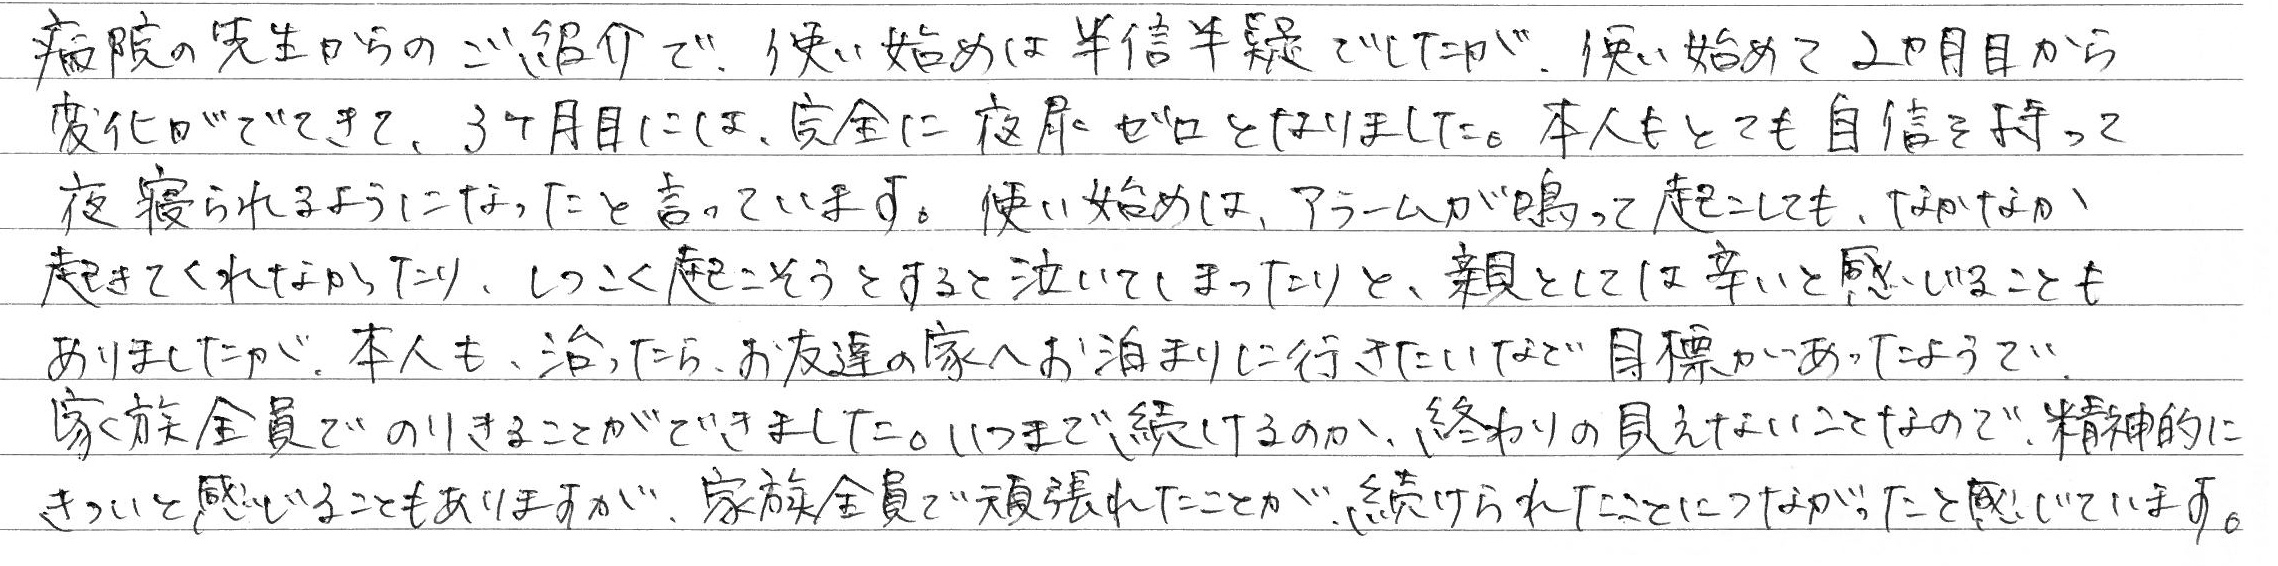 病院の先生からのご紹介で、使い始めは半信半疑でしたが、使い始めて2ヶ月目から
変化がでてきて、3ヶ月目には、完全に夜尿ゼロとなりました。本人もとても自信を持って
夜寝られるようになったと言っています。使い始めは、アラームが鳴って起こしても、なかなか
起きてくれなかったり、しつこく起こそうとすると泣いてしまったりと、親としては辛いと感じることも
ありましたが、本人も、治ったら、お友達の家へお泊まりに行きたいなど目標があったようで、
家族全員でのりきることができました。いつまで続けるのか、終わりの見えないことなので、精神的に
きついと感じることもありますが、家族全員で頑張れたことが、続けられたことにつながったと感じています。